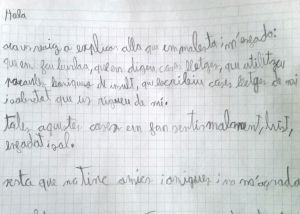 Hola
avui vaig a explicar allo que em molesta i m'enfada:
que em fan burles, que em diguen coses lletges, que utilitzen
paraules boniques de insult, que escribiun coses lletges de mi
i sobretot que us rigueu de mi.
totes aquestes coses em fan sentir malament, trist,
enfadat i sol.
resta que no tinc amics i amigues i no m'agrada